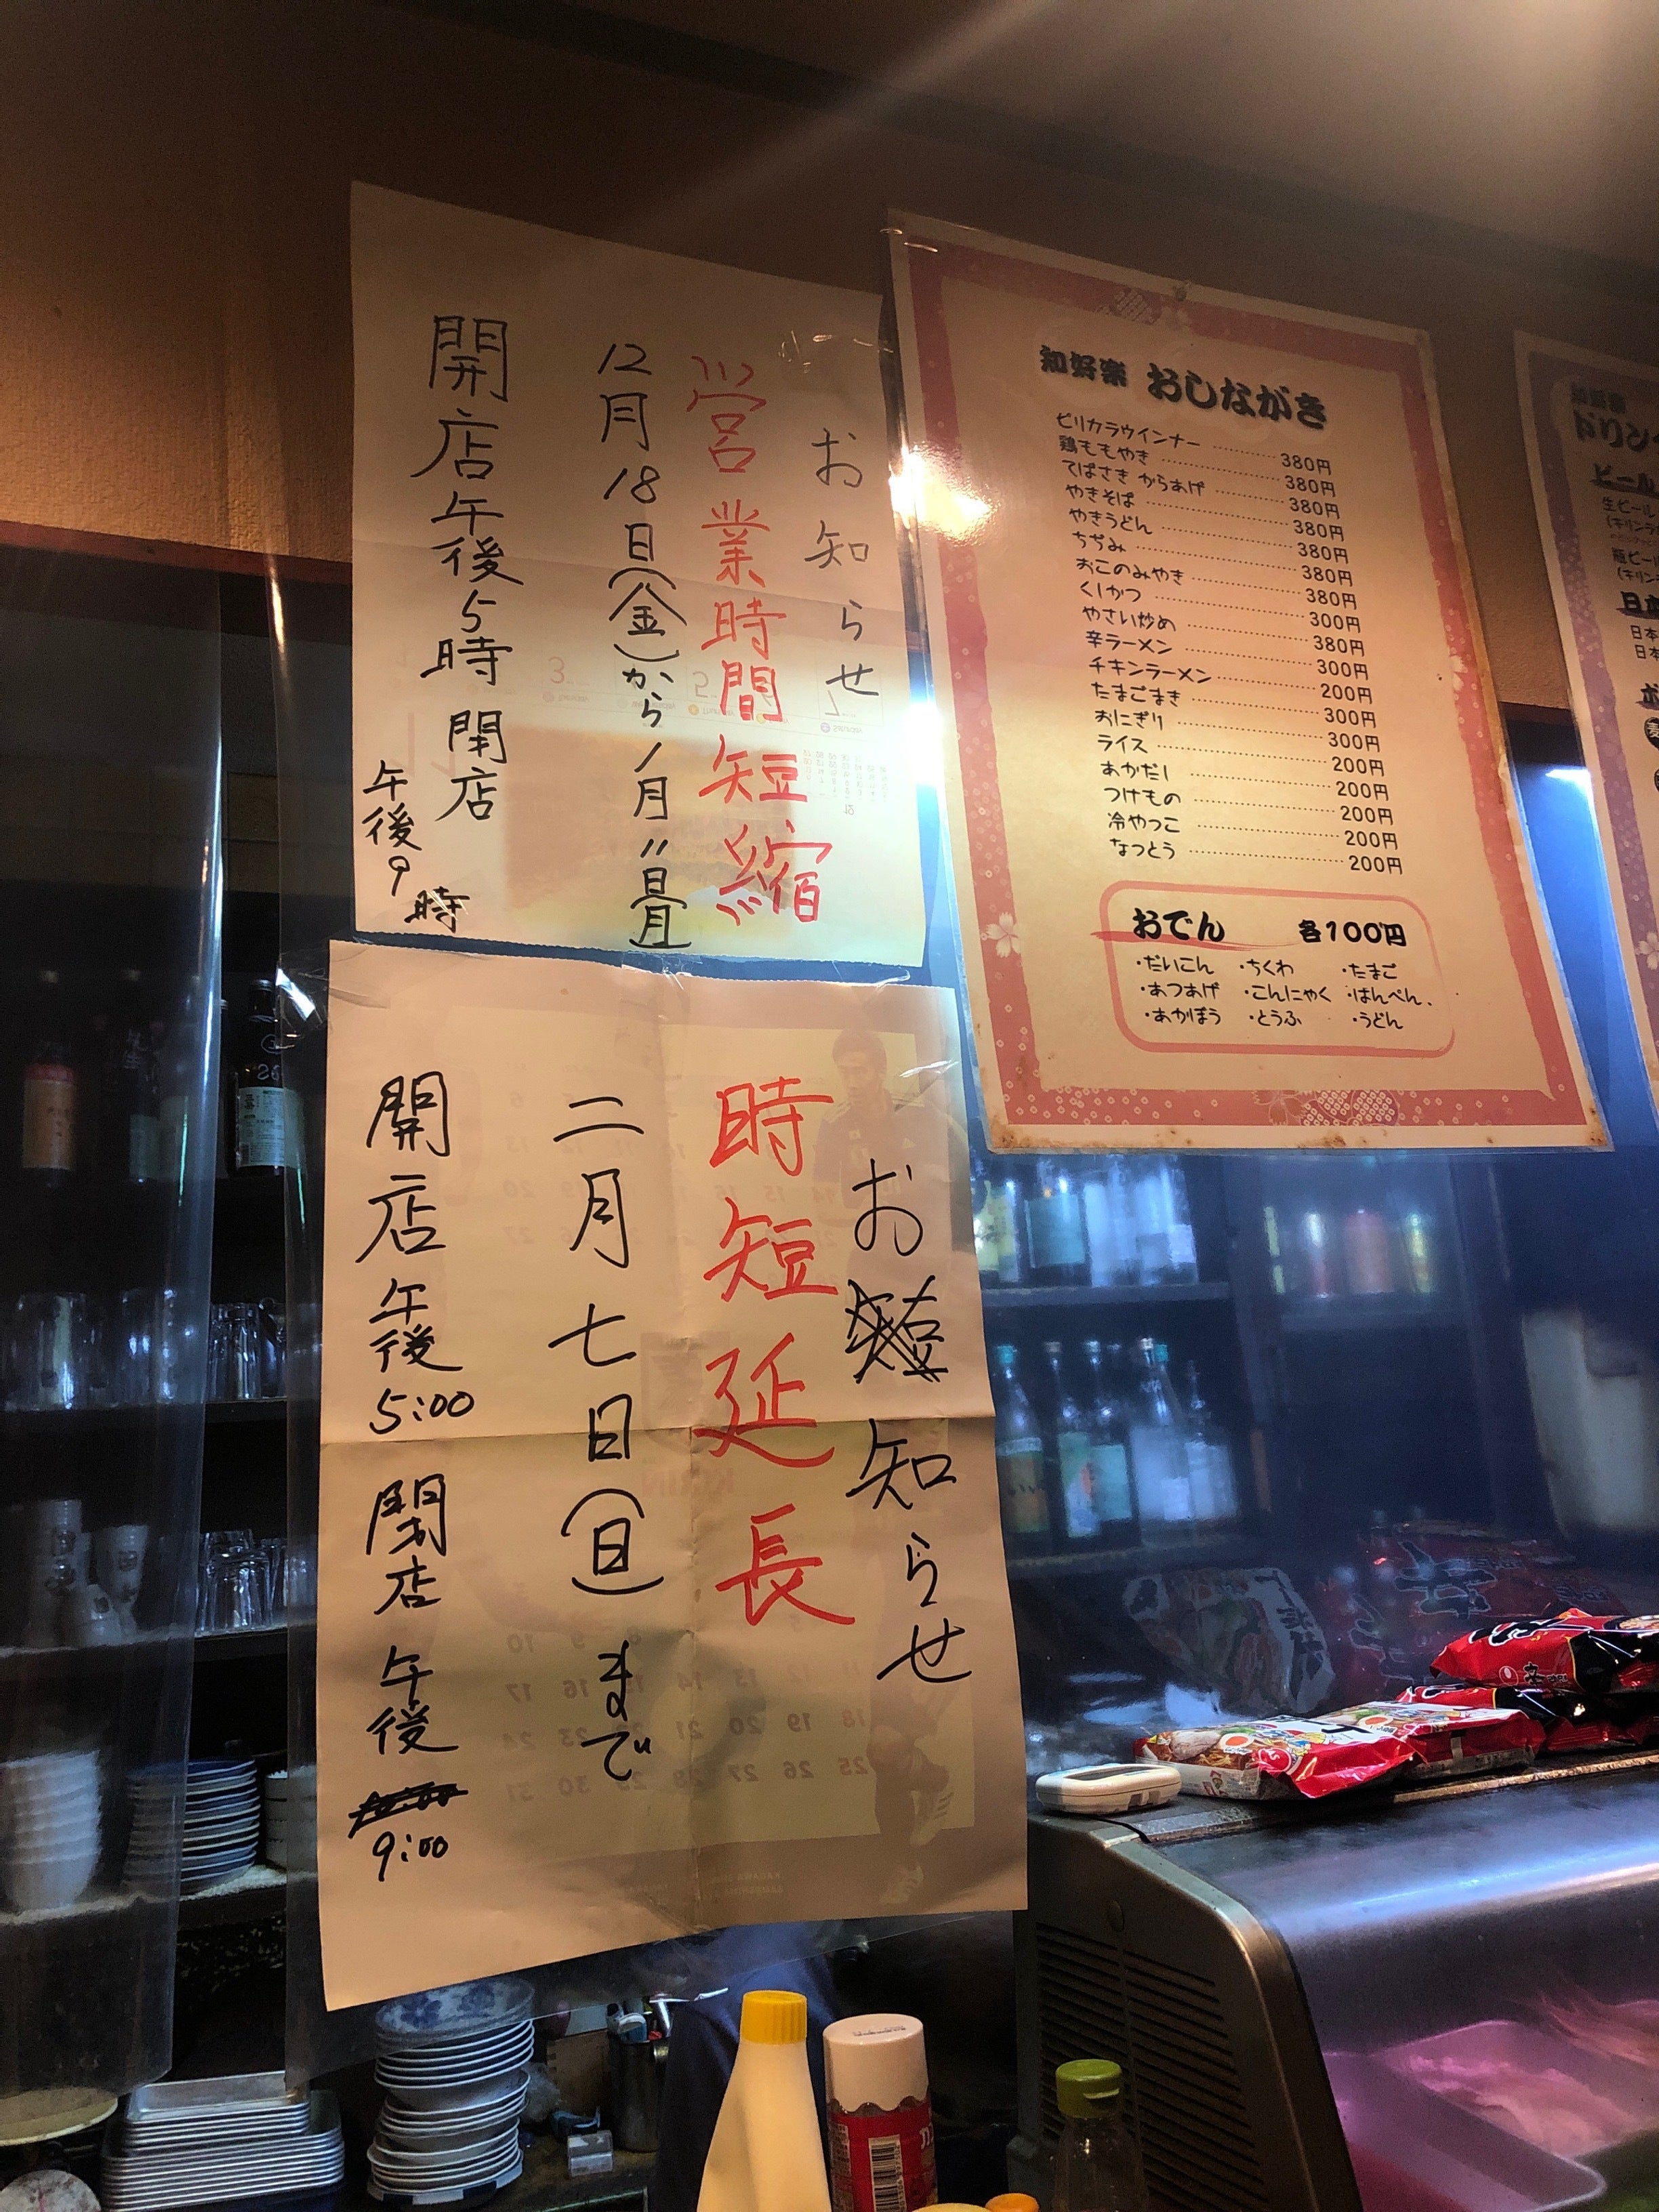 お知らせ
営業時間短縮
12月18日(金)から1月11日(月)
開店午後5時 閉店
午後9時
お知らせ
時短延長
二月七日(日)まで
開店午後5:00 閉店午後
9:00
知好楽 おしながき
ピリカラウインナー 380円
鶏ももやき 380円
てばさきからあげ 380円
やきそば 380円
やきうどん 380円
ちぢみ 380円
おこのみやき 380円
くしかつ 300円
やさい炒め 380円
辛ラーメン 300円
チキンラーメン 200円
たまごまき 300円
おにぎり 300円
ライス 200円
あかだし 200円
つけもの 200円
冷やっこ 200円
なっとう 200円
おでん 各100円
・だいこん ・ちくわ ・たまご
・あつあげ ・こんにゃく ・はんぺん、
・あかぼう ・とうふ ・うどん
ドリン
ビール
生ビール
(キリンラ
瓶ビール
(キリン
日本
日本